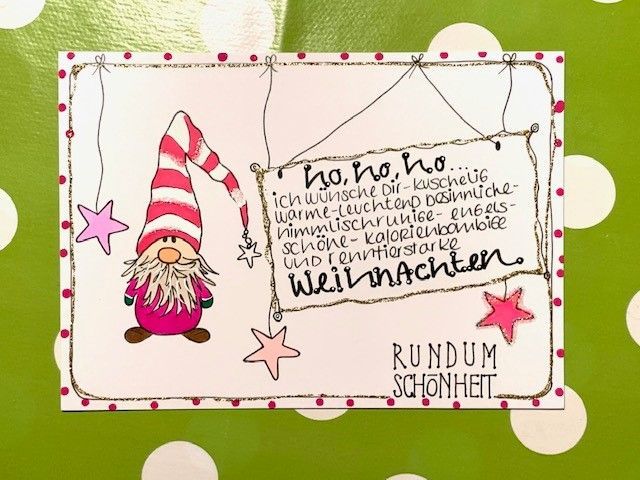 Ho, Ho, Ho...
ich wünsche Dir - kuschelig
warme - leuchtend besinnliche -
himmlisch ruhige - engels -
schöne - kalorienbombige
und renntierstarke
Weihnachten.
RUNDUM
SCHÖNHEIT